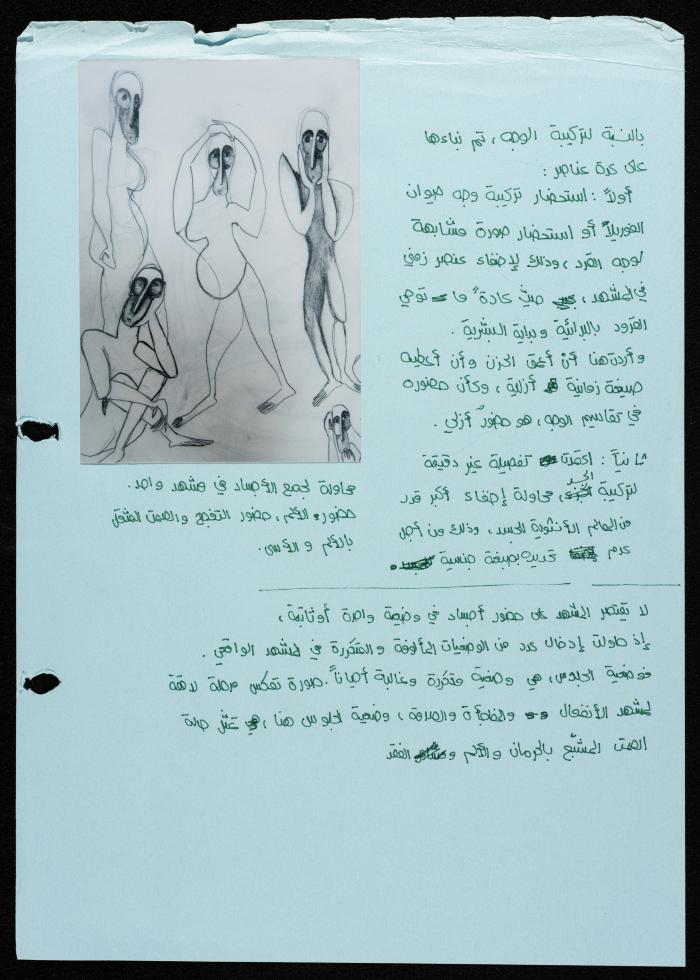 بالنسبة لتركيبة الوجه ، تم بناءها
على عدة عناصر :
أولاً : استحضار تركيبة وجه حيوان
الغوريلا أو استحضار صورة مشابهة
لوجه القرد ، وذلك لإضفاء عنصر زمني
في المشهد ، حيث عادةً ما توحي
القرود بالبدائية وبداية البشرية .
وأردت هنا أن أعمق الحزن وأن أعطيه
صيغة زمانية أزلية ، وكأن حضوره
في تقاسيم الوجه ، هو حضور أزلي .
ثانياً : اعتمدت تفصيلة غير دقيقة
لتركيبة الجسد ، محاولة إخفاء أكبر قدر
من المعالم الأنثوية للجسد ، وذلك من أجل
عدم تحديده بصبغة جنسية
محاولة لجمع الأجساد في مشهد واحد .
حضور الألم ، حضور التفجع والصمت المثقل
بالألم و الأسى .
لا يقتصر المشهد على حضور أجساد في وضعية واحدة أو ثابتة ،
إذ حاولت إدخال عدد من الوضعيات المألوفة والمتكررة في المشهد الواقعي .
فوضعية الجلوس ، هي وضعية متكررة وغالبة أحياناً . صورة تعكس مرحلة لاحقة
لمشهد الأنفعال و والمفاجأة والصدمة ، وضعية الجلوس هنا ، هي تمثل حالة
الصمت المشبّع بالحرمان والألم و الفقد